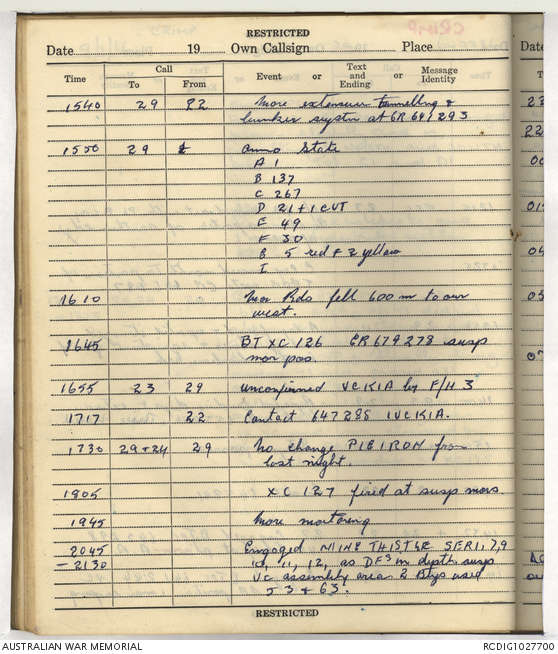 RESTRICTED
Date 19 Own Callsign Place
Time Call To From Event or Text and Ending or Message Identity
1540 29 22 More extensive tunnelling &
bunker system at GR 641293
1550 29 Ammo State
A 1
B 137
C 267
D 21 + 1 CUT
E 49
F 30
5 red & 2 yellow
I
1610 Mor Rds fell 600 m to our
west.
1645 BT XC 126 GR 679278 susp
mor pos.
1655 23 29 Unconfirmed VCKIA by F/H 3
1717 22 Contact 647288 1VCKIA.
1730 29+24 29 No change PIGIRON from
last night.
1805 XC 127 fired at susp mors.
1945 More mortaring
2045 Engaged NINE THISTLE SER 1, 7, 9
- 2130 10, 11, 12, as DFs in depth susp
VC assembly area 2 Btys used
53 & 63.
RESTRICTED
AUSTRALIAN WAR MEMORIAL
RCDIG1027700